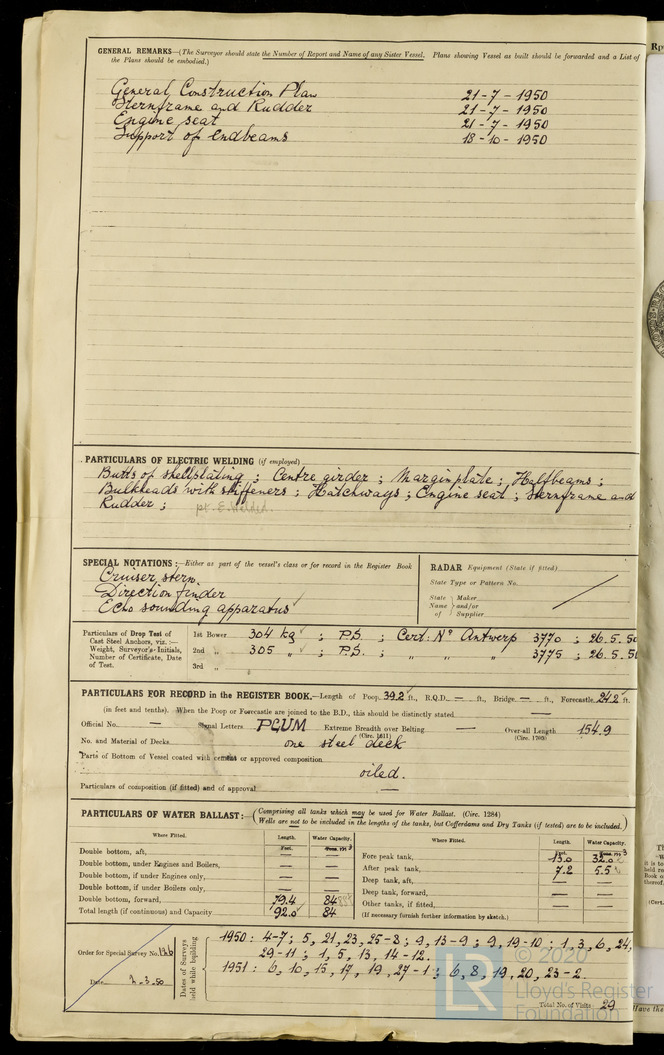 GENERAL REMARKS—(The Surveyor should state the Number of Report and Name of any Sister Vessel. Plans showing Vessel as built should be forwarded and a List of
the Plans should be embodied.)
General Construction Plan 21-7-1950
Sternframe and Rudder 21-7-1950
Engine seat 21-7-1950
Support of endbeams 18-10-1950
PARTICULARS OF ELECTRIC WELDING (if employed)
Butts of shellplating ; Centre girder ; Marginplate ; Halfbeams ;
Bulkheads with stiffeners ; Hatchways ; Engine seat ; Sternframe and
Rudder ; pt. E. Welded.
SPECIAL NOTATIONS :—Either as part of the vessel's class or for record in the Register Book
Cruiser stern
Direction finder
Echo sounding apparatus
RADAR Equipment (State if fitted)
State Type or Pattern No.
State Name of { Maker and/or Supplier
Particulars of Drop Test of
Cast Steel Anchors, viz. :—
Weight, Surveyor's Initials,
Number of Certificate, Date
of Test.
1st Bower 304 kg ; P.S. ; Cert: No Antwerp 3770 ; 26.5.50
2nd „ 305 „ ; P.S. ; „ „ „ 3775 ; 26.5.50
3rd „
PARTICULARS FOR RECORD in the REGISTER BOOK.—Length of Poop 39.2 ft., R.Q.D. — ft., Bridge — ft., Forecastle 24.2 ft.
(in feet and tenths). When the Poop or Forecastle are joined to the B.D., this should be distinctly stated —
Official No. — Signal Letters PGUM Extreme Breadth over Belting (Circ. 1611) — Over-all Length (Circ. 1703) 154.9
No. and Material of Decks one steel deck
Parts of Bottom of Vessel coated with cement or approved composition
oiled.
Particulars of composition (if fitted) and of approval —
PARTICULARS OF WATER BALLAST :— (Comprising all tanks which may be used for Water Ballast. (Circ. 1284)
Wells are not to be included in the lengths of the tanks, but Cofferdams and Dry Tanks (if tested) are to be included.)
Where Fitted. Length. Water Capacity.
Feet. Tons.
Double bottom, aft, — —
Double bottom, under Engines and Boilers, — —
Double bottom, if under Engines only, — —
Double bottom, if under Boilers only, — —
Double bottom, forward, 79.4 84
Total length (if continuous) and Capacity 92.0 84
Where Fitted. Length. Water Capacity.
Feet. Tons.
Fore peak tank, 13.0 32.0
After peak tank, 7.2 5.5
Deep tank, aft, — —
Deep tank, forward, — —
Other tanks, if fitted, — —
(If necessary furnish further information by sketch.)
Order for Special Survey No. 126
Date 2.3.50
Dates of Surveys held while building
1950 : 4-7 ; 5, 21, 23, 25-8 ; 9, 13-9 ; 9, 19-10 ; 1, 3, 6, 24,
29-11 ; 1, 5, 13, 14-12.
1951 : 6, 10, 15, 17, 19, 27-1 ; 6, 8, 19, 20, 23-2.
Total No. of Visits 29
LR
© 2020
Lloyd's Register
Foundation